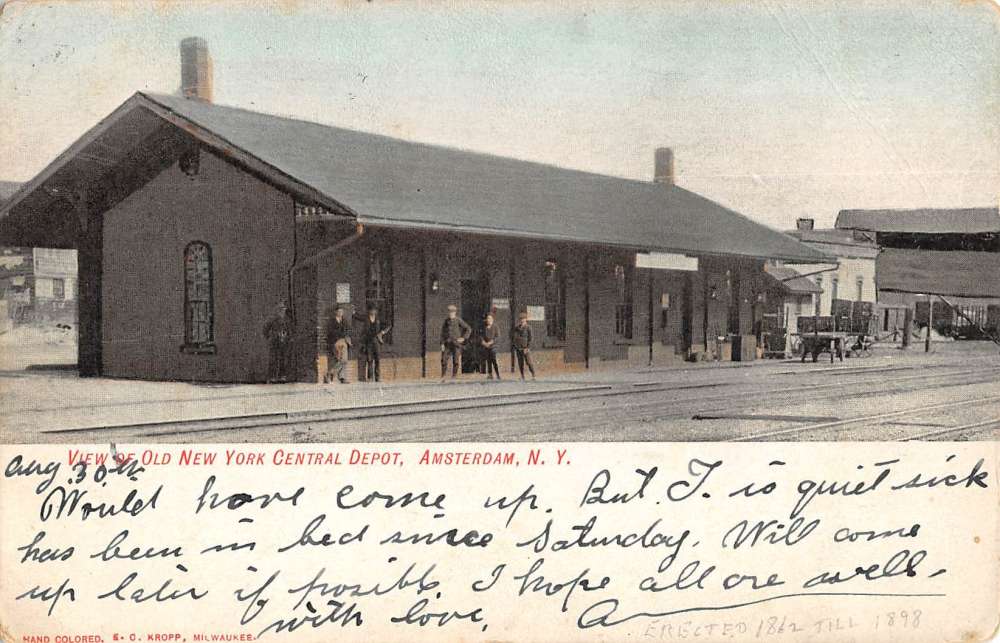 View of Old New York Central Depot, Amsterdam, N. Y.
Aug 30th
Would have come up. But J. is quiet sick
has been in bed since Saturday. Will come
up later if posible. I hope all are well.
with love, A
Erected 1862 till 1898
Hand Colored, E. C. Kropp, Milwaukee.